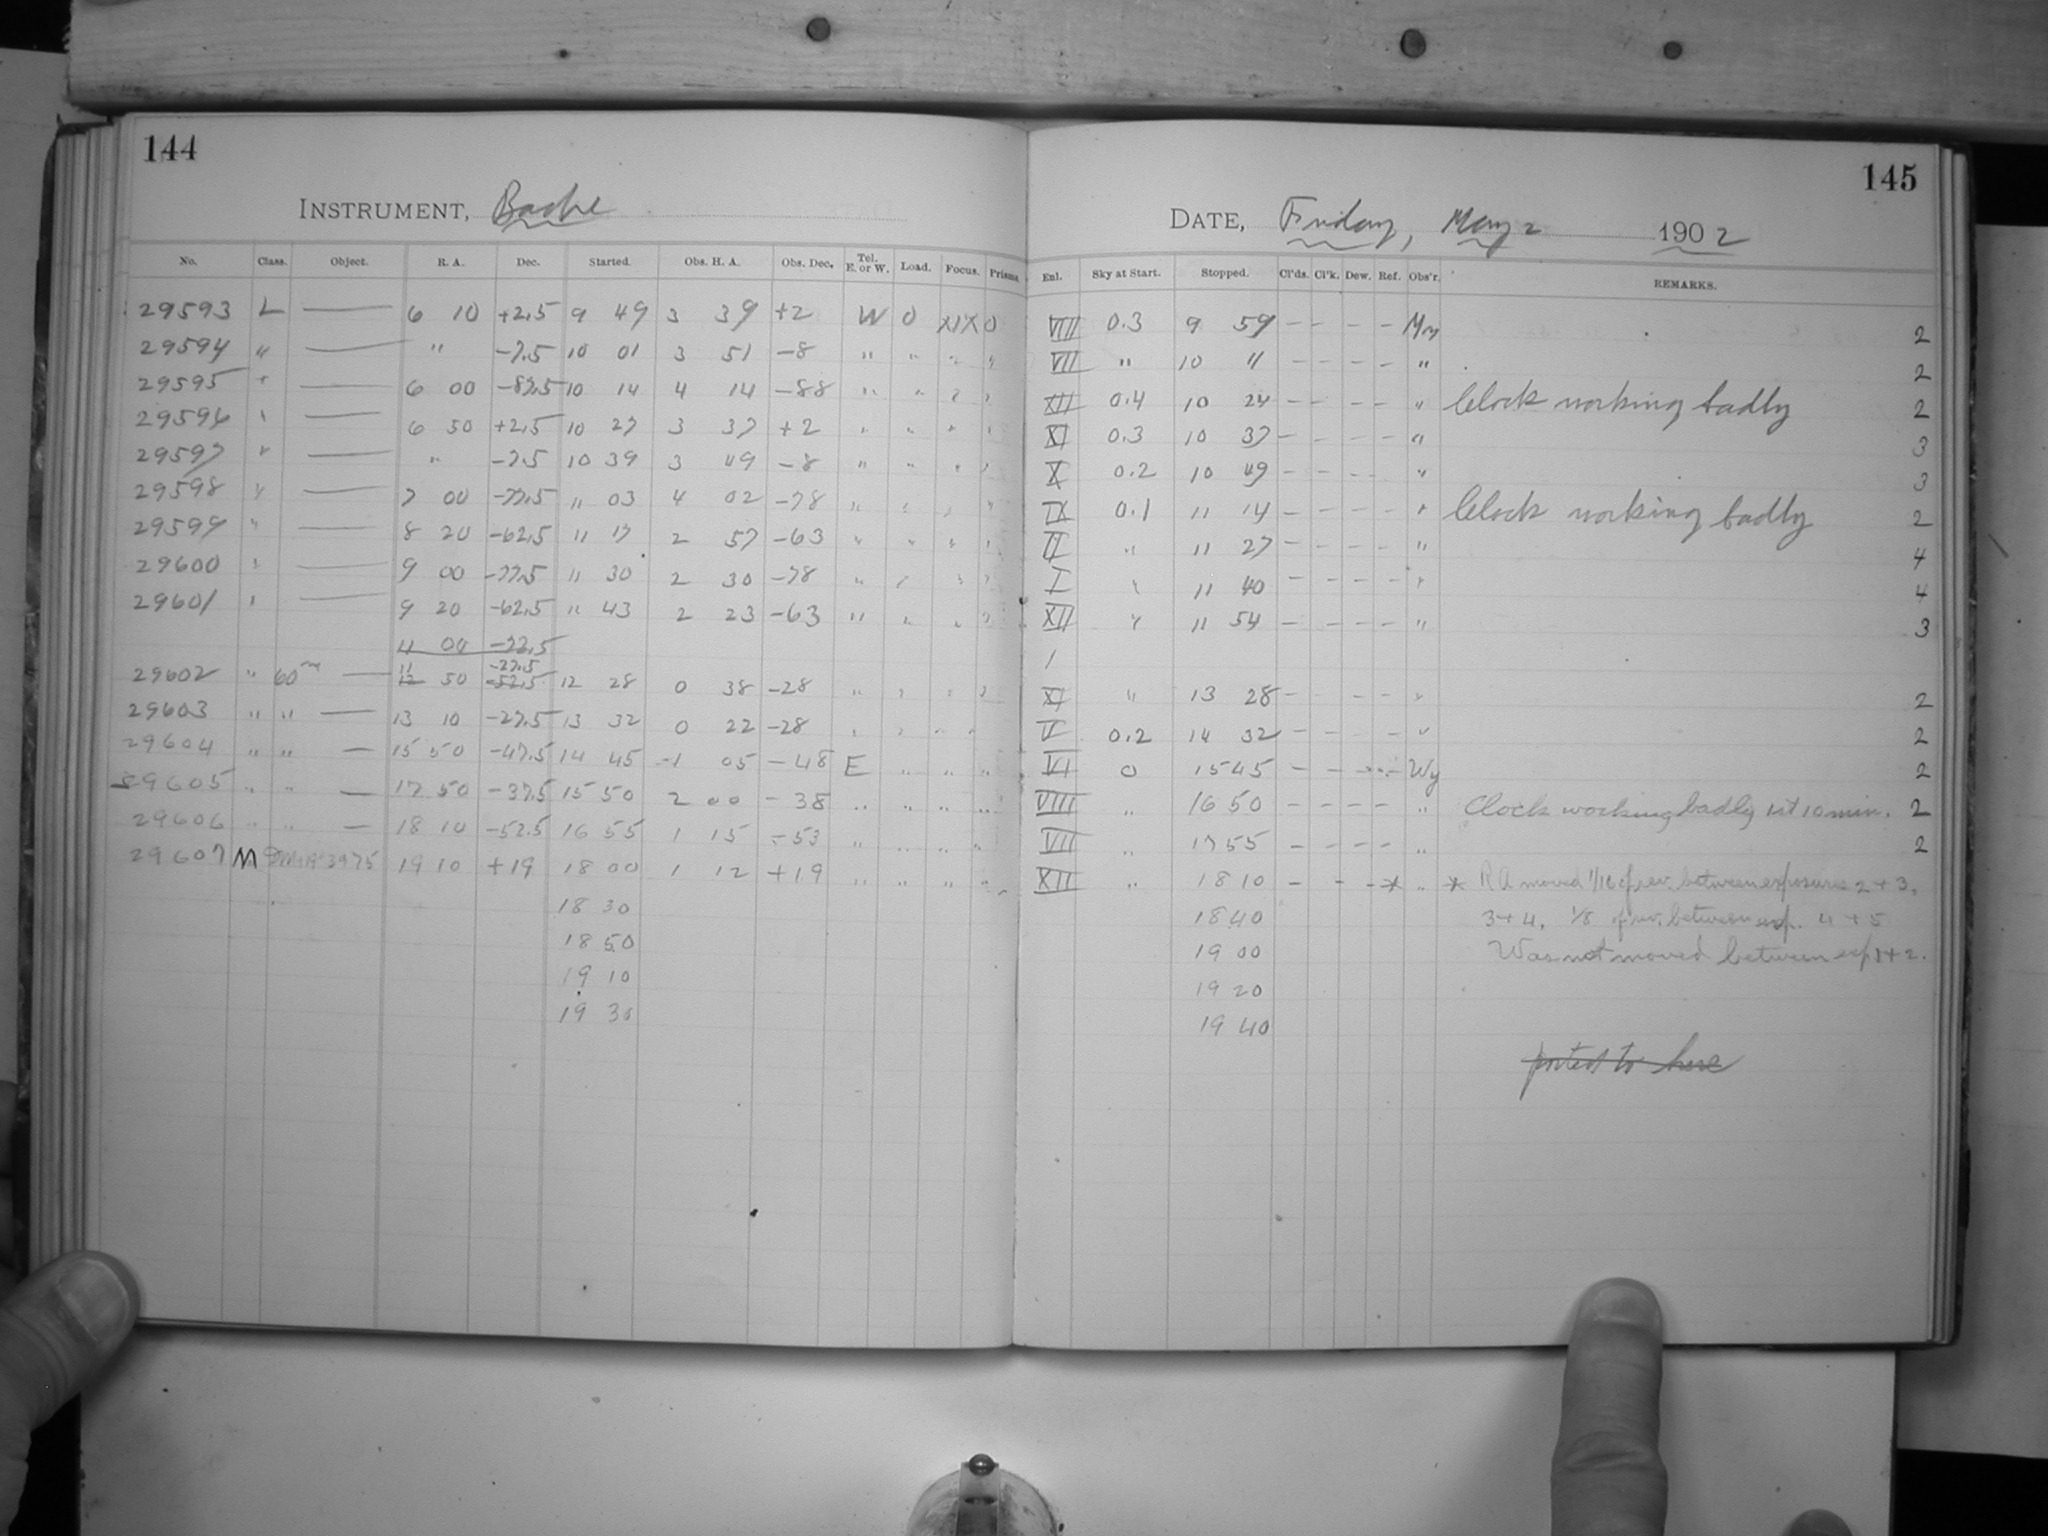 144
INSTRUMENT, Bache
No. Class. Object. R. A. Dec. Started. Obs. H. A. Obs. Dec. Tel. E. or W. Load. Focus. Prisms.
29593 L — 6 10 +2.5 9 49 3 39 +2 W 0 XIX 0
29594 " — " -7.5 10 01 3 51 -8 " " " "
29595 " — 6 00 -87.5 10 14 4 14 -88 " " " "
29596 " — 6 50 +2.5 10 27 3 37 +2 " " " "
29597 " — " -7.5 10 39 3 49 -8 " " " "
29598 " — 7 00 -77.5 11 03 4 02 -78 " " " "
29599 " — 8 20 -62.5 11 17 2 57 -63 " " " "
29600 " — 9 00 -77.5 11 30 2 30 -78 " " " "
29601 " — 9 20 -62.5 11 43 2 23 -63 " " " "
11 00 -22.5
29602 " 60m — 11 12 50 -27.5 -52.5 12 28 0 38 -28 " " " "
29603 " " — 13 10 -27.5 13 32 0 22 -28 " " " "
29604 " " — 15 50 -47.5 14 45 -1 05 -48 E " " "
29605 " " — 17 50 -37.5 15 50 2 00 -38 " " " "
29606 " " — 18 10 -52.5 16 55 1 15 -53 " " " "
29607 M 3975 19 10 +19 18 00 1 12 +19 " " " "
18 30
18 50
19 10
19 30
145
DATE, Friday, May 2 1902
Enl. Sky at Start. Stopped. Cl'ds. Cl'k. Dew. Ref. Obs'r. REMARKS.
VIII 0.3 9 59 — — — — My 2
VII " 10 11 — — — — " 2
XII 0.4 10 24 — — — — " Clock working badly 2
XI 0.3 10 37 — — — — " 3
X 0.2 10 49 — — — — " 3
IX 0.1 11 14 — — — — " Clock working badly 2
II " 11 27 — — — — " 4
I " 11 40 — — — — " 4
XII " 11 54 — — — — " 3
/
XI " 13 28 — — — — " 2
V 0.2 14 32 — — — — " 2
VI 0 15 45 — — — — Wy 2
VIII " 16 50 — — — — " Clock working badly 1st 10 min. 2
VII " 17 55 — — — — " 2
XII " 18 10 — — — * " * RA moved 1/16 of rev. between exposures 2 + 3,
18 40 3 + 4, 1/8 of rev. between exp. 4 + 5
19 00 Was not moved between exp. 1 + 2.
19 20
19 40
posted to here